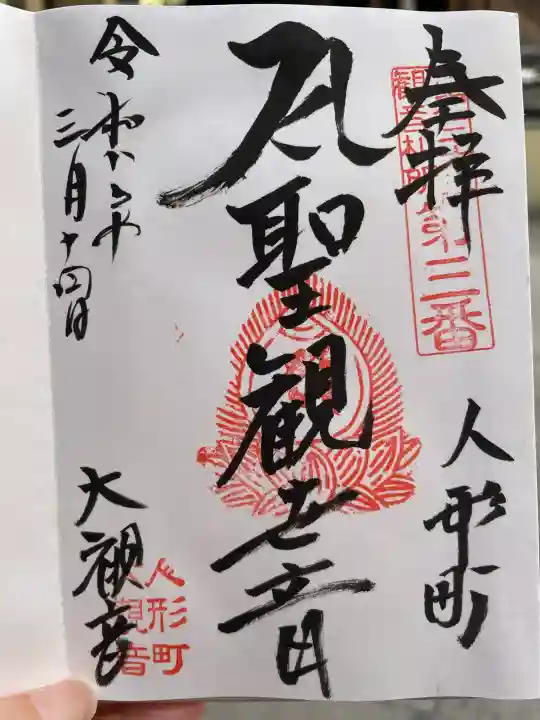 奉拝
人形町
聖観世音
令和八年
三月十四日
大観音
第三番
人形町
観音